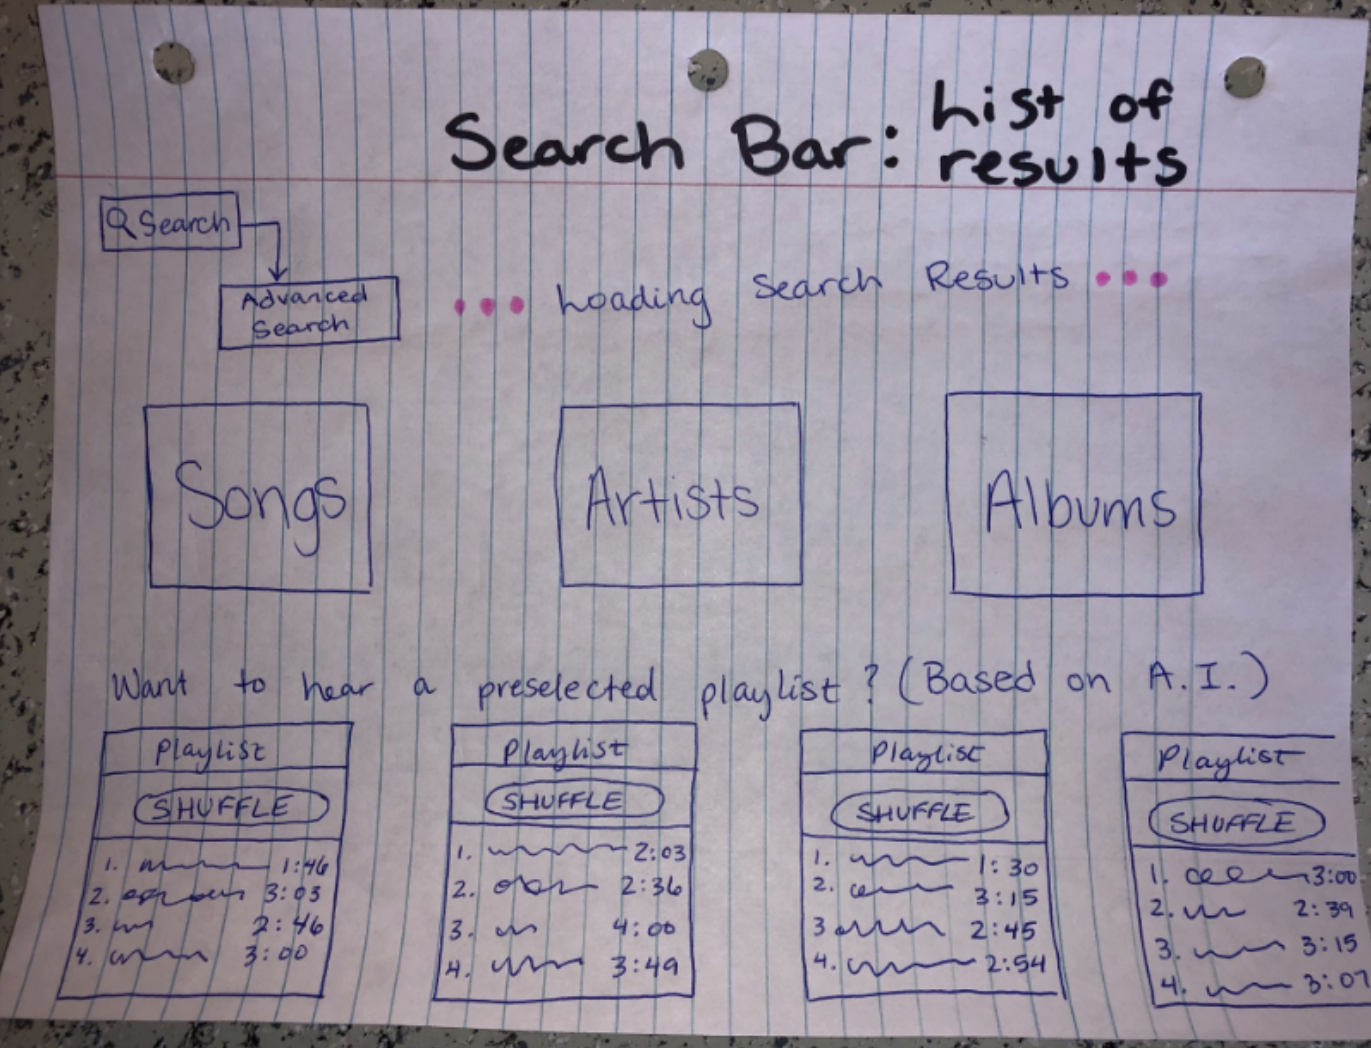 Search Bar: List of
results
Search
Advanced
Search
••• Loading Search Results •••
Songs
Artists
Albums
Want to hear a preselected playlist? (Based on A.I.)
Playlist
SHUFFLE
1. 1:46
2. 3:03
3. 2:46
4. 3:00
Playlist
SHUFFLE
1. 2:03
2. 2:36
3. 4:00
4. 3:49
Playlist
SHUFFLE
1. 1:30
2. 3:15
3 2:45
4. 2:54
Playlist
SHUFFLE
1. 3:00
2. 2:39
3. 3:15
4. 3:07